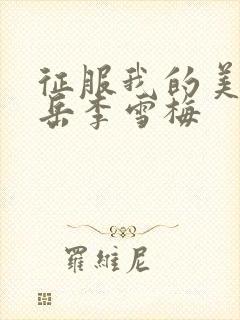 征服我的美
岳李雪梅
羅維尼